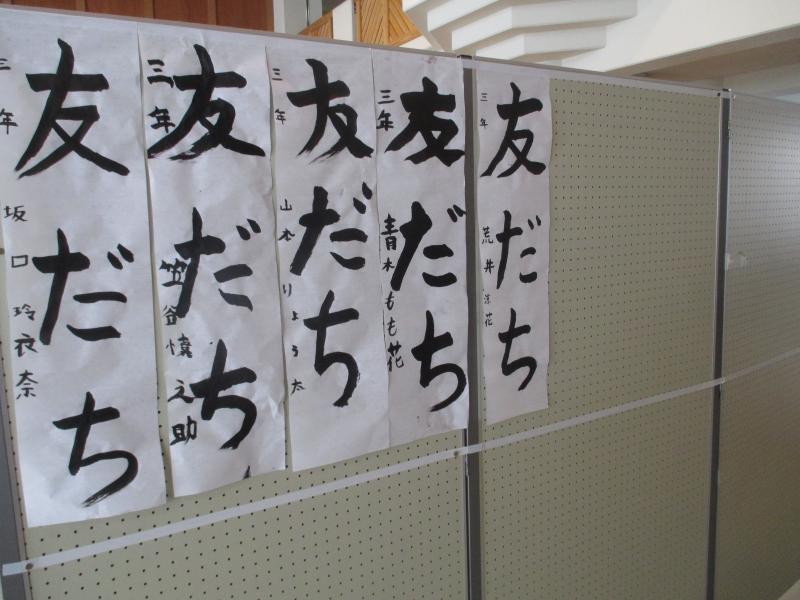 友だち
三年 坂口玲衣奈
友だち
三年 笠谷慎之助
友だち
三年 山本りょう太
友だち
三年 青木もも花
友だち
三年 荒井涼花